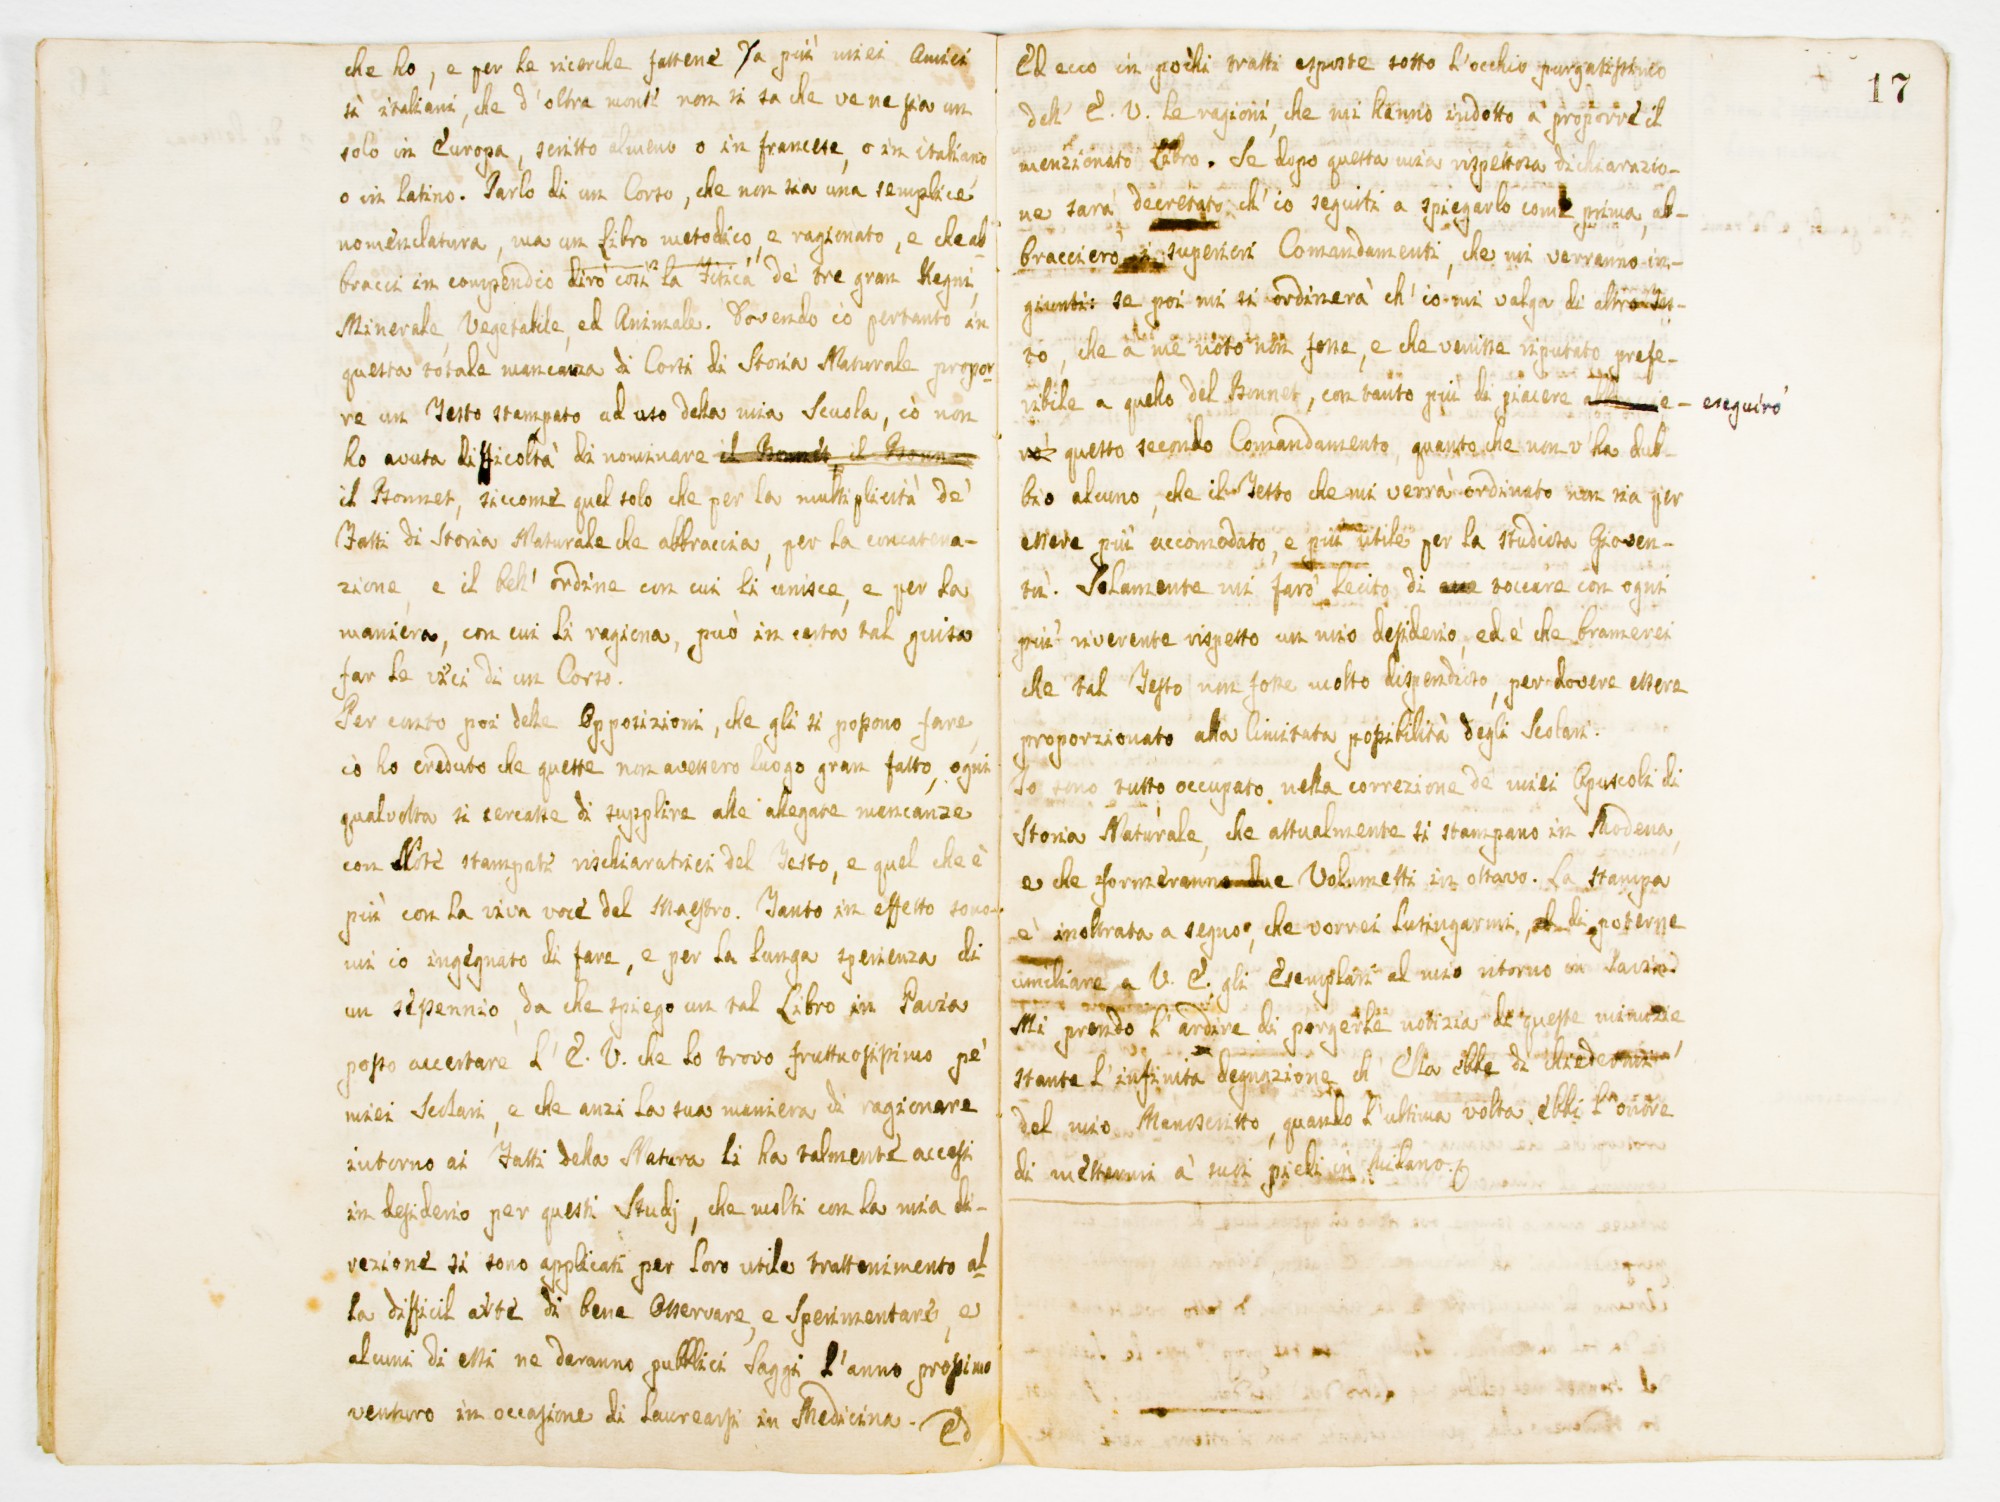 che ho, e per le ricerche fattene da più miei Amici
sì italiani, che d'oltre monte non si sa che ve ne sia un
solo in Europa, scritto almeno o in francese, o in italiano
o in latino. Parlo di un Corso, che non sia una semplice
nomenclatura, ma un Libro metodico, e ragionato, e che ab-
bracci in compendio dirò così la Fisica de' tre gran Regni,
Minerale, Vegetabile, ed Animale. Dovendo io pertanto in
questa totale mancanza di Corsi di Storia Naturale propor-
re un Testo stampato ad uso della mia Scuola, io non
ho avuta difficoltà di nominare il Bonnet, il Bonn
il Bonnet, siccome quel solo che per la multiplicità de'
Fatti di Storia Naturale che abbraccia, per la concatena-
zione, e il bell'ordine con cui li unisce, e per la
maniera, con cui li ragiona, può in certa tal guisa
far le veci di un Corso.
Per conto poi delle Opposizioni, che gli si possono fare,
io ho creduto che queste non avessero luogo gran fatto, ogni
qualvolta si cercasse di supplire alle allegate mancanze
con Note stampate rischiaratrici del Testo, e quel che è
più con la viva voce del Maestro. Tanto in effetto sono-
mi io ingegnato di fare, e per la lunga sperienza di
un sepennio, da che spiego un tal Libro in Pavia
posso accertare l'E. V. che lo trovo fruttuosissimo pe'
miei Scolari, e che anzi la sua maniera di ragionare
intorno ai Fatti della Natura li ha talmente accesi
in desiderio per questi Studj, che molti con la mia di-
rezione si sono applicati per loro utile trattenimento al-
la difficil arte di bene Osservare, e Sperimentare, e
alcuni di essi ne daranno pubblici Saggi l'anno prossimo
venturo in occasione di laurearsi in Medicina. Ed
17
Ed ecco in pochi tratti esposte sotto l'occhio purgatissimo
dell'E. V. le ragioni, che mi hanno indotto a proporre il
menzionato Libro. Se dopo questa mia rispettosa dichiarazio-
ne sarà decretato ch'io seguiti a spiegarlo come prima, ab-
braccierò i superiori Comandamenti, che mi verranno in-
giunti: se poi mi si ordinerà ch'io mi valga di altro Tes-
to, che a me noto non fosse, e che venisse riputato prefe-
ribile a quello del Bonnet, con tanto più di piacere e- eseguirò
rò questo secondo Comandamento, quanto che non v'ha dub-
bio alcuno, che il Testo che mi verrà ordinato non sia per
essere più accomodato, e più utile per la studiosa Gioven-
tù. Solamente mi farò lecito di toccare con ogni
più riverente rispetto un mio desiderio, ed è che bramerei
che tal Testo non fosse molto dispendioso, per dovere essere
proporzionato alla limitata possibilità degli Scolari.
Io sono tutto occupato nella correzione de' miei Opuscoli di
Storia Naturale, che attualmente si stampano in Modena,
e che formeranno due Volumetti in ottavo. La stampa
è inoltrata a segno, che vorrei lusingarmi, di poterne
umiliare a V. E. gli Esemplari al mio ritorno in Pavia.
Mi prendo l'ardire di porgerle notizia di queste minuzie
stante l'infinita degnazione ch'Ella ebbe di chiedermi
del mio Manoscritto, quando l'ultima volta ebbi l'onore
di mettermi a' suoi piedi in Milano.